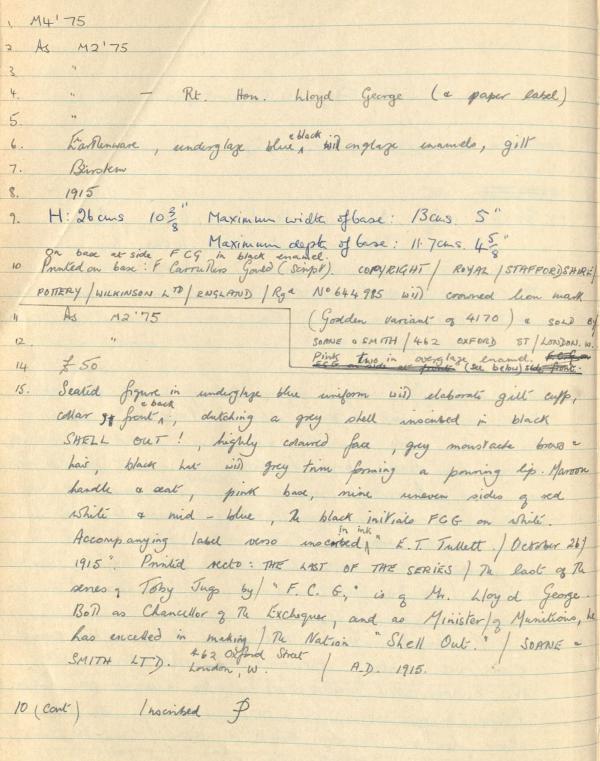 1. M4'75
2. As M2'75
3. "
4. " — Rt. Hon. Lloyd George (& paper label)
5. "
6. Earthenware, underglaze blue & black with onglaze enamels, gilt
7. Burslem
8. 1915
9. H: 26 cms 10 3/8" Maximum width of base: 13 cms. 5"
Maximum depth of base: 11.7 cms. 4 5/8"
on base at side FCG in black enamel.
10 Printed on base: F Carruthers Gould (script). COPYRIGHT / ROYAL / STAFFORDSHIRE /
POTTERY / WILKINSON LTD / ENGLAND / Rgd No 644985 with crowned lion mark
11 As M2'75 (Godden variant of 4170) & SOLD BY
12. " SOANE & SMITH / 462 OXFORD ST / LONDON. W.
Pink two in overglaze enamel.
14 £50 (see below)
15. Seated figure in underglaze blue uniform with elaborate gilt cuffs,
collar & front & back, clutching a grey shell inscribed in black
SHELL OUT!, highly coloured face, grey moustache brows &
hair, black hat with grey trim forming a pouring lip. Maroon
handle & seat, pink base, nine uneven sides of red
white & mid-blue, the black initials FCG on white.
Accompanying label verso inscribed in ink, "E.T. Tullett / October 26 /
1915". Printed recto: THE LAST OF THE SERIES / The last of the
series of Toby Jugs by / "F.C.G," is of Mr. Lloyd George.
Both as Chancellor of the Exchequer, and as Minister / of Munitions, he
has excelled in making / the Nation "Shell Out." / SOANE &
SMITH LTD. 462 Oxford Street London, W. / A.D. 1915.
10 (cont) Inscribed